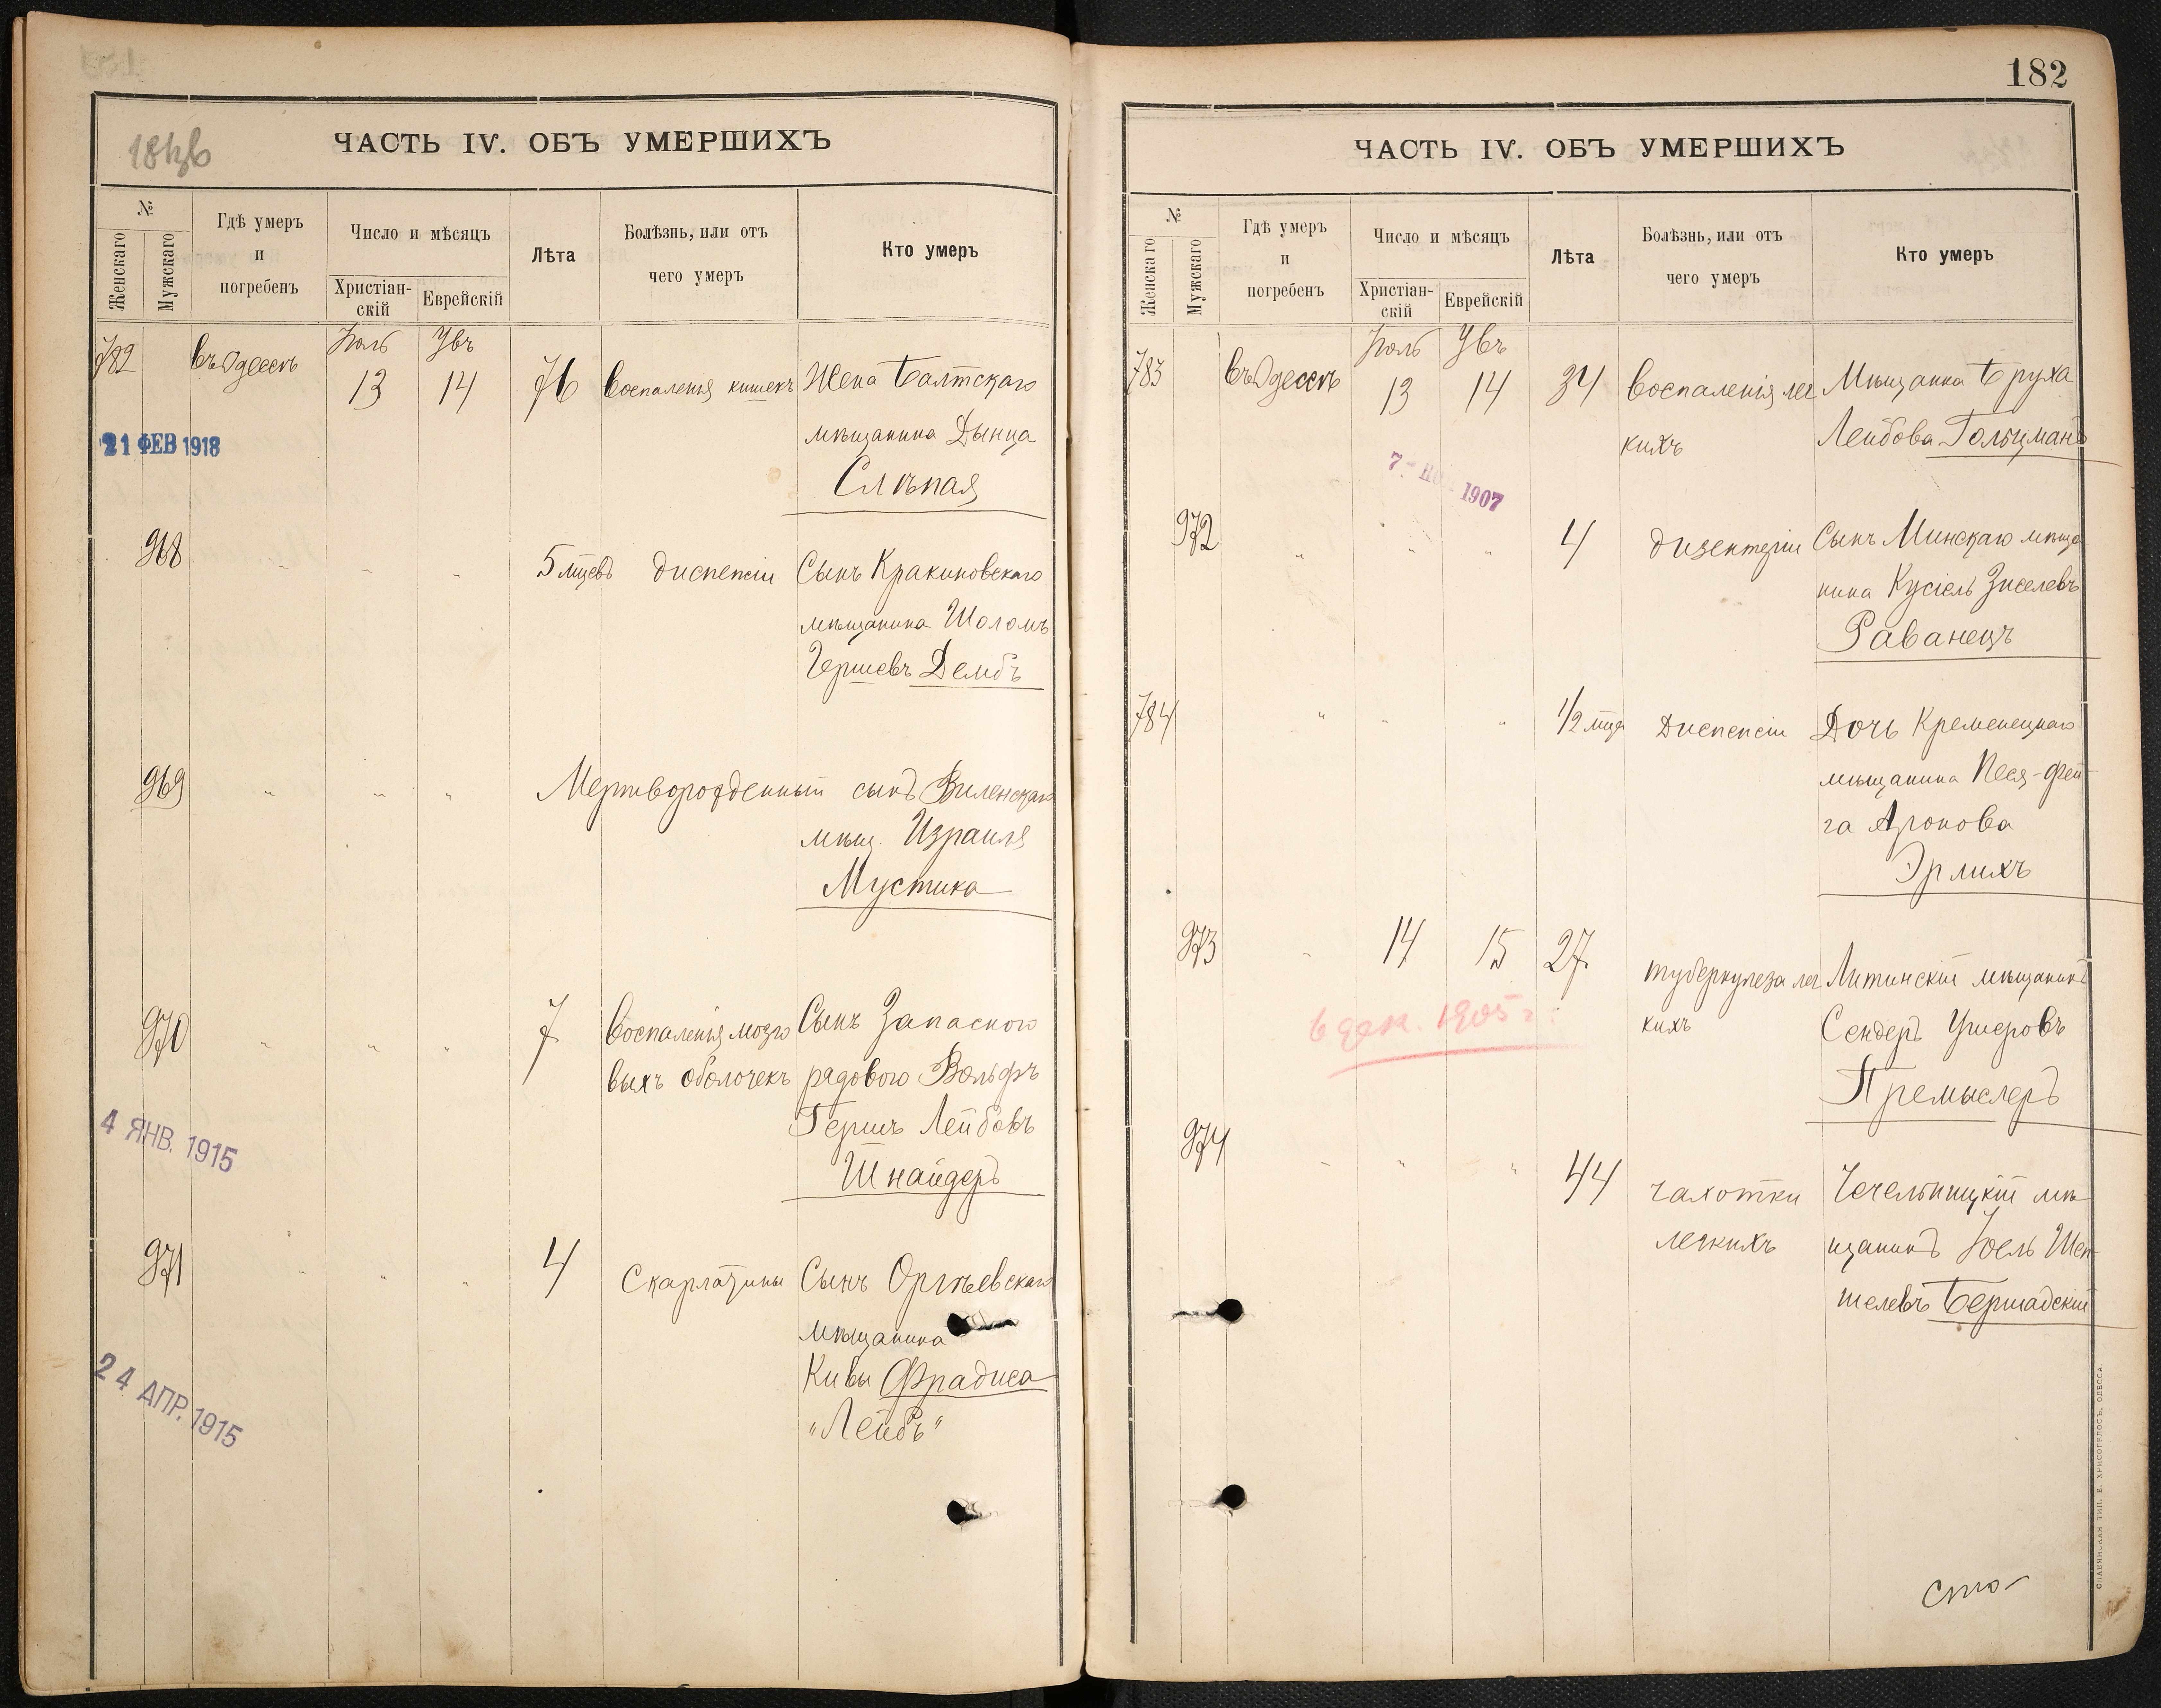 ЧАСТЬ IV. ОБЪ УМЕРШИХЪ
№
Женскаго
Мужскаго
Гдѣ умеръ
и
погребенъ
Число и мѣсяцъ
Христіан-
скій
Еврейскій
Лѣта
Болѣзнь, или отъ
чего умеръ
Кто умеръ
782 въ Одессѣ Іюль 13 Увъ 14 76 воспаленія кишекъ Жена Балтскаго
мѣщанина Дынца
Слѣпая
21 ФЕВ 1918
968 " " " 5 мцевъ диспепсіи Сынъ Кракиновскаго
мѣщанина Шоломъ
Гершевъ Дембъ
969 " " " Мертворожденный сынъ Виленскаго
мѣщ. Израиля
Мустика
970 " " " 7 воспаленія мозго Сынъ Запаснаго
выхъ оболочекъ рядового Вольфъ
Гершъ Лейбовъ
Шнайдеръ
4 ЯНВ. 1915
971 " " " 4 Скарлатины Сынъ Оргѣевскаго
мѣщанина
Кивы Фрадиса
"Лейбъ"
24 АПР. 1915
182
ЧАСТЬ IV. ОБЪ УМЕРШИХЪ
№
Женскаго
Мужскаго
Гдѣ умеръ
и
погребенъ
Число и мѣсяцъ
Христіан-
скій
Еврейскій
Лѣта
Болѣзнь, или отъ
чего умеръ
Кто умеръ
783 въ Одессѣ Іюль 13 Увъ 14 34 воспаленія лег Мѣщанка Бруха
кихъ Лейбова Гольцманъ
7 1907
972 " " " 4 дизентеріи Сынъ Минскаго мѣща
нина Кусіель Зиселевъ
Раванецъ
784 " " " 1/2 мца Диспепсіи Дочь Кременецкаго
мѣщанина Песя-Фей
га Аронова
Эрлихъ
973 " 14 15 27 туберкулеза лег Литинскій мѣщанинъ
кихъ Сендеръ Ушеровъ
6 дек. 1905 г.
Премыслеръ
974 " " " 44 чахотки Чечельницкій мѣ
легкихъ щанинъ Іоель Шеп
шелевъ Бершадскій
сто
СЛАВЯНСКАЯ ТИП. Е. ХРИСОГЕЛОСЪ, ОДЕССА